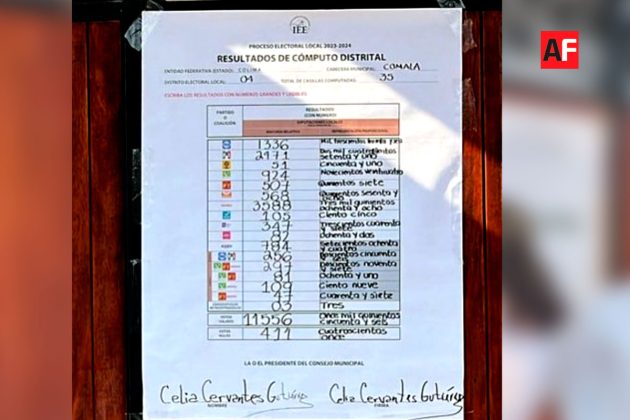 IEE
AF
PROCESO ELECTORAL LOCAL 2023-2024
RESULTADOS DE CÓMPUTO DISTRITAL
ENTIDAD FEDERATIVA (ESTADO): COLIMA CABECERA MUNICIPAL: COMALA
DISTRITO ELECTORAL LOCAL: 04 TOTAL DE CASILLAS COMPUTADAS: 35
ESCRIBA LOS RESULTADOS CON NÚMEROS GRANDES Y LEGIBLES
PARTIDO O COALICIÓN
RESULTADOS
(CON NÚMERO)
DIPUTACIONES LOCALES
MAYORÍA RELATIVA REPRESENTACIÓN PROPORCIONAL
1336 Mil trescientos
2471 Dos mil cuatrocientos setenta y uno
51 Cincuenta y uno
924 Novecientos
507 Quinientos siete
568 Quinientos sesenta y ocho
3588 Tres mil quinientos ochenta y ocho
105 Ciento cinco
347 Trescientos cuarenta y siete
82 Ochenta y dos
784 Setecientos ochenta y cuatro
256 Doscientos cincuenta y seis
297 Doscientos noventa y siete
81 Ochenta y uno
109 Ciento nueve
47 Cuarenta y siete
03 Tres
11556 Once mil quinientos cincuenta y seis
VOTOS NULOS 411 Cuatroscientos once
LA O EL PRESIDENTE DEL CONSEJO MUNICIPAL
Celia Cervantes Gutiérrez Celia Cervantes Gutiérrez
NOMBRE FIRMA